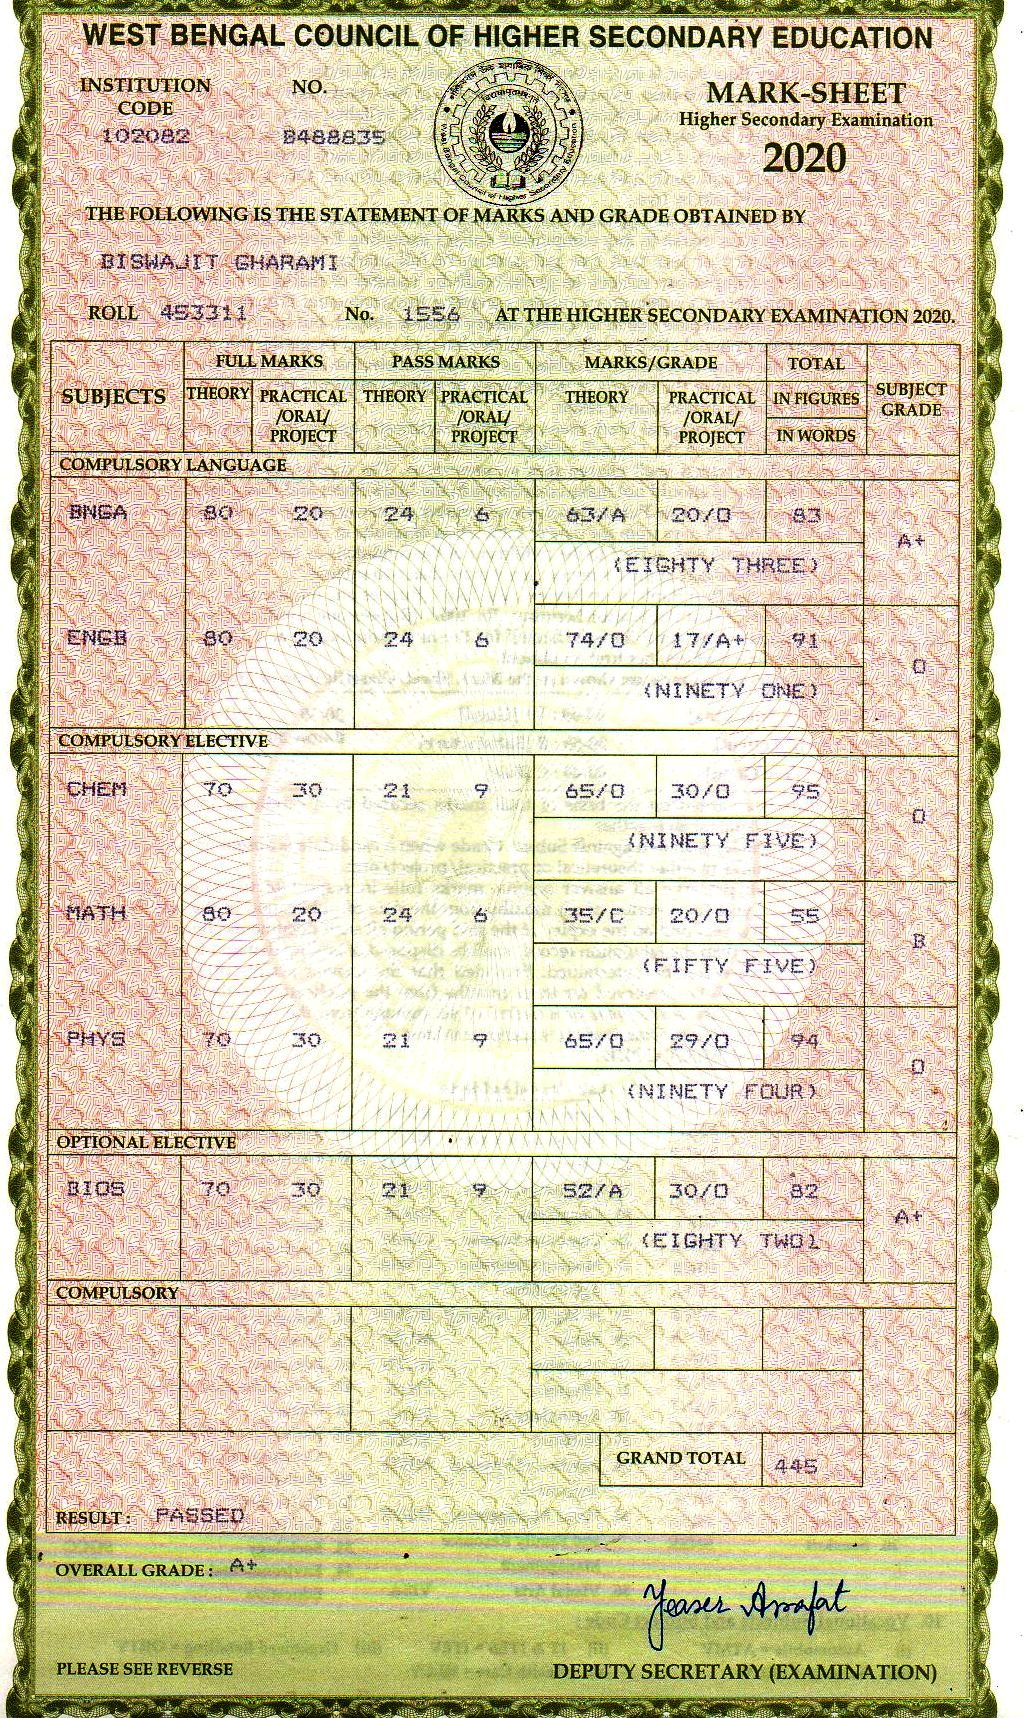 WEST BENGAL COUNCIL OF HIGHER SECONDARY EDUCATION
INSTITUTION CODE NO.
102082 B488835
MARK-SHEET
Higher Secondary Examination
2020
THE FOLLOWING IS THE STATEMENT OF MARKS AND GRADE OBTAINED BY
BISWAJIT GHARAMI
ROLL 453311 No. 1556 AT THE HIGHER SECONDARY EXAMINATION 2020.
SUBJECTS FULL MARKS PASS MARKS MARKS/GRADE TOTAL SUBJECT GRADE
THEORY PRACTICAL /ORAL/ PROJECT THEORY PRACTICAL /ORAL/ PROJECT THEORY PRACTICAL /ORAL/ PROJECT IN FIGURES
IN WORDS
COMPULSORY LANGUAGE
BNGA 80 20 24 6 63/A 20/O 83 A+
(EIGHTY THREE)
ENGB 80 20 24 6 74/O 17/A+ 91 O
(NINETY ONE)
COMPULSORY ELECTIVE
CHEM 70 30 21 9 65/O 30/O 95 O
(NINETY FIVE)
MATH 80 20 24 6 35/C 20/O 55 B
(FIFTY FIVE)
PHYS 70 30 21 9 65/O 29/O 94 O
(NINETY FOUR)
OPTIONAL ELECTIVE
BIOS 70 30 21 9 52/A 30/O 82 A+
(EIGHTY TWO)
COMPULSORY
GRAND TOTAL 445
RESULT : PASSED
OVERALL GRADE : A+
Yeaser Arrafat
PLEASE SEE REVERSE DEPUTY SECRETARY (EXAMINATION)